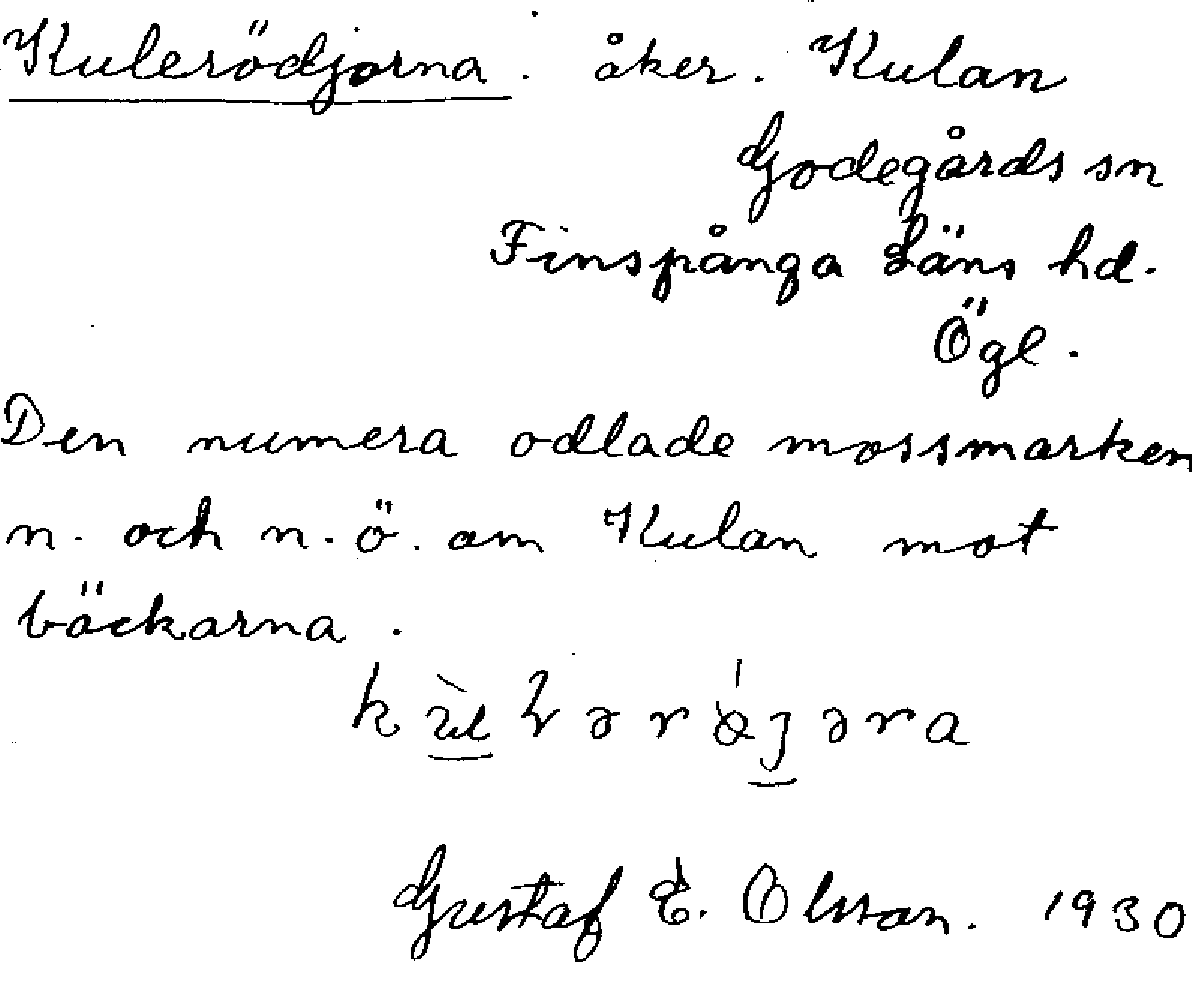 Kulerödjorna. åker. Kulan
Godegårds sn
Finspånga Läns hd.
Ögl.
Den numera odlade mossmarken
n. och n.ö. om Kulan mot
bäckarna.
Gustaf E. Olsson. 1930